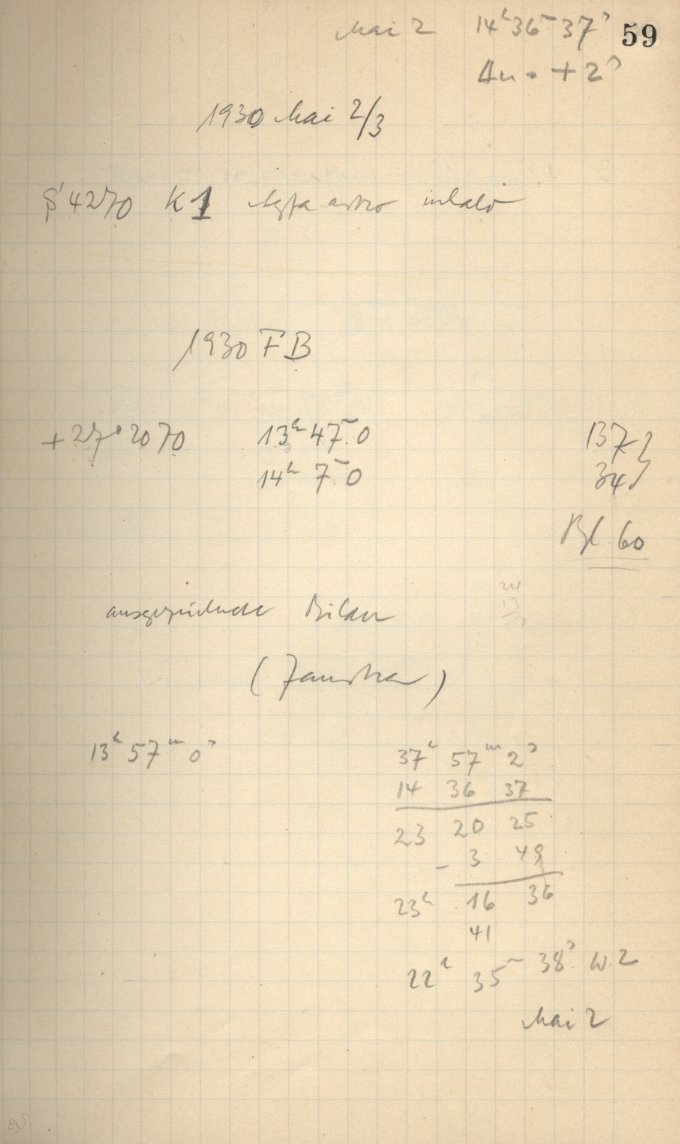 Mai 2 14ʰ36ᵐ37ˢ 59
Δu = +2ˢ
1930 Mai 2/3
4270 K1 Agfa astro
1930 FB
+27°2070 13ʰ47ᵐ.0 137
14ʰ 7ᵐ.0 34
Bl 60
ausgezeichnete Bilder
24
13
13ʰ 57ᵐ 0ˢ 37ʰ 57ᵐ 2ˢ
14 36 37
23 20 25
- 3 49
23ʰ 16 36
41
22ʰ 35ᵐ 38ˢ W.Z
Mai 2